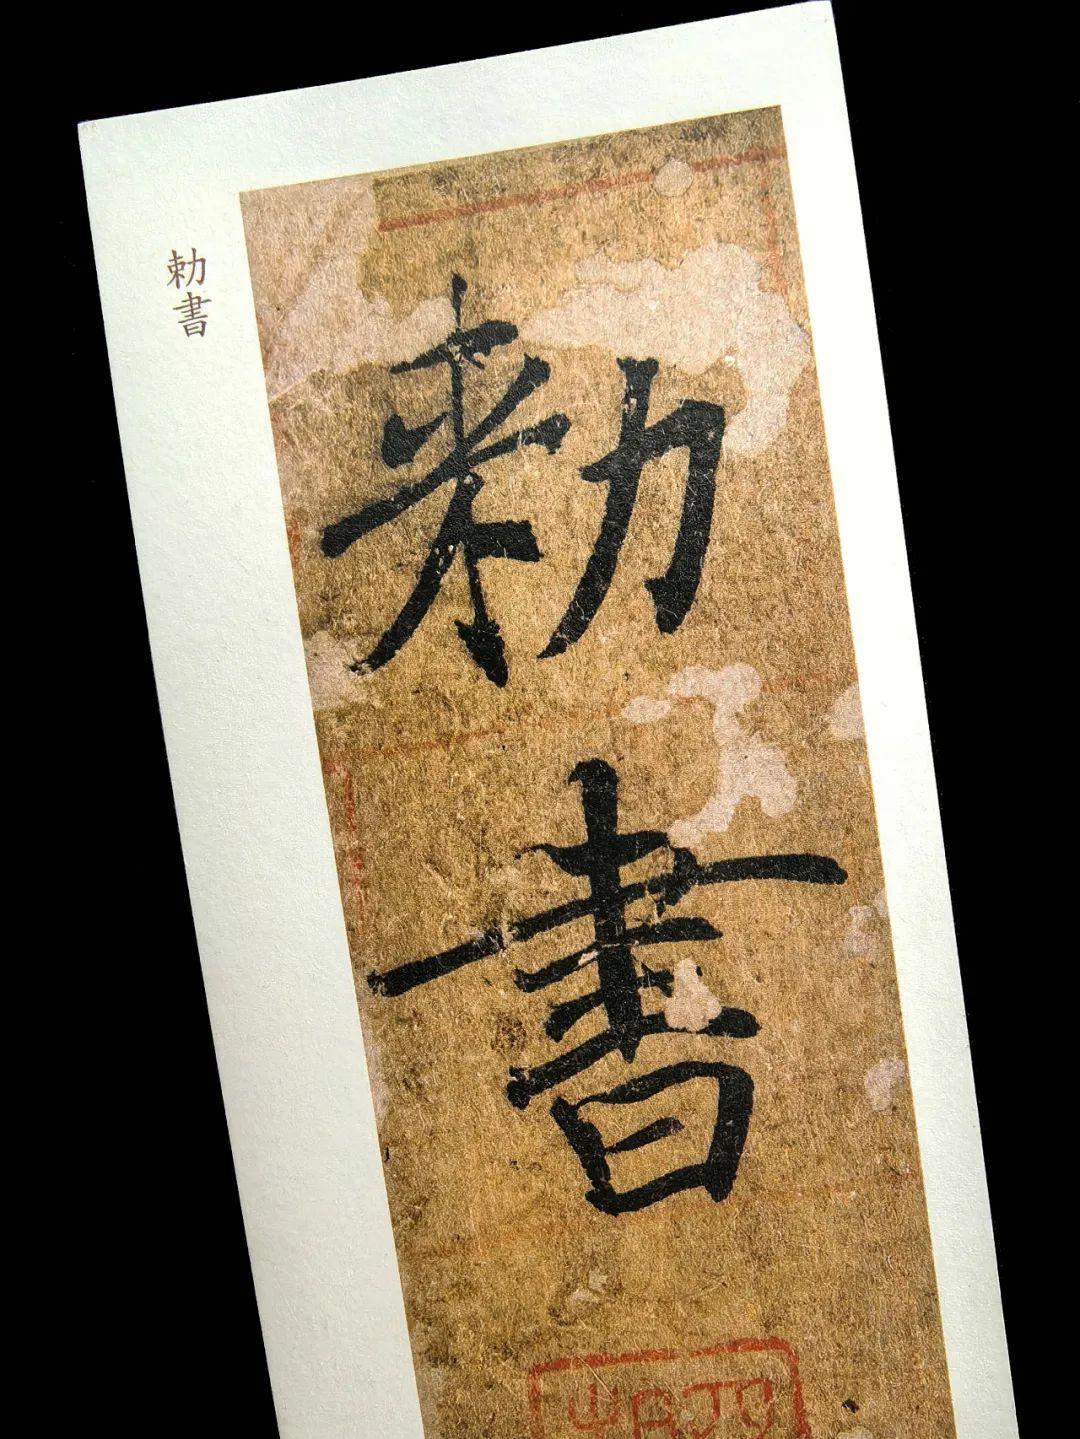 勅書
勅書